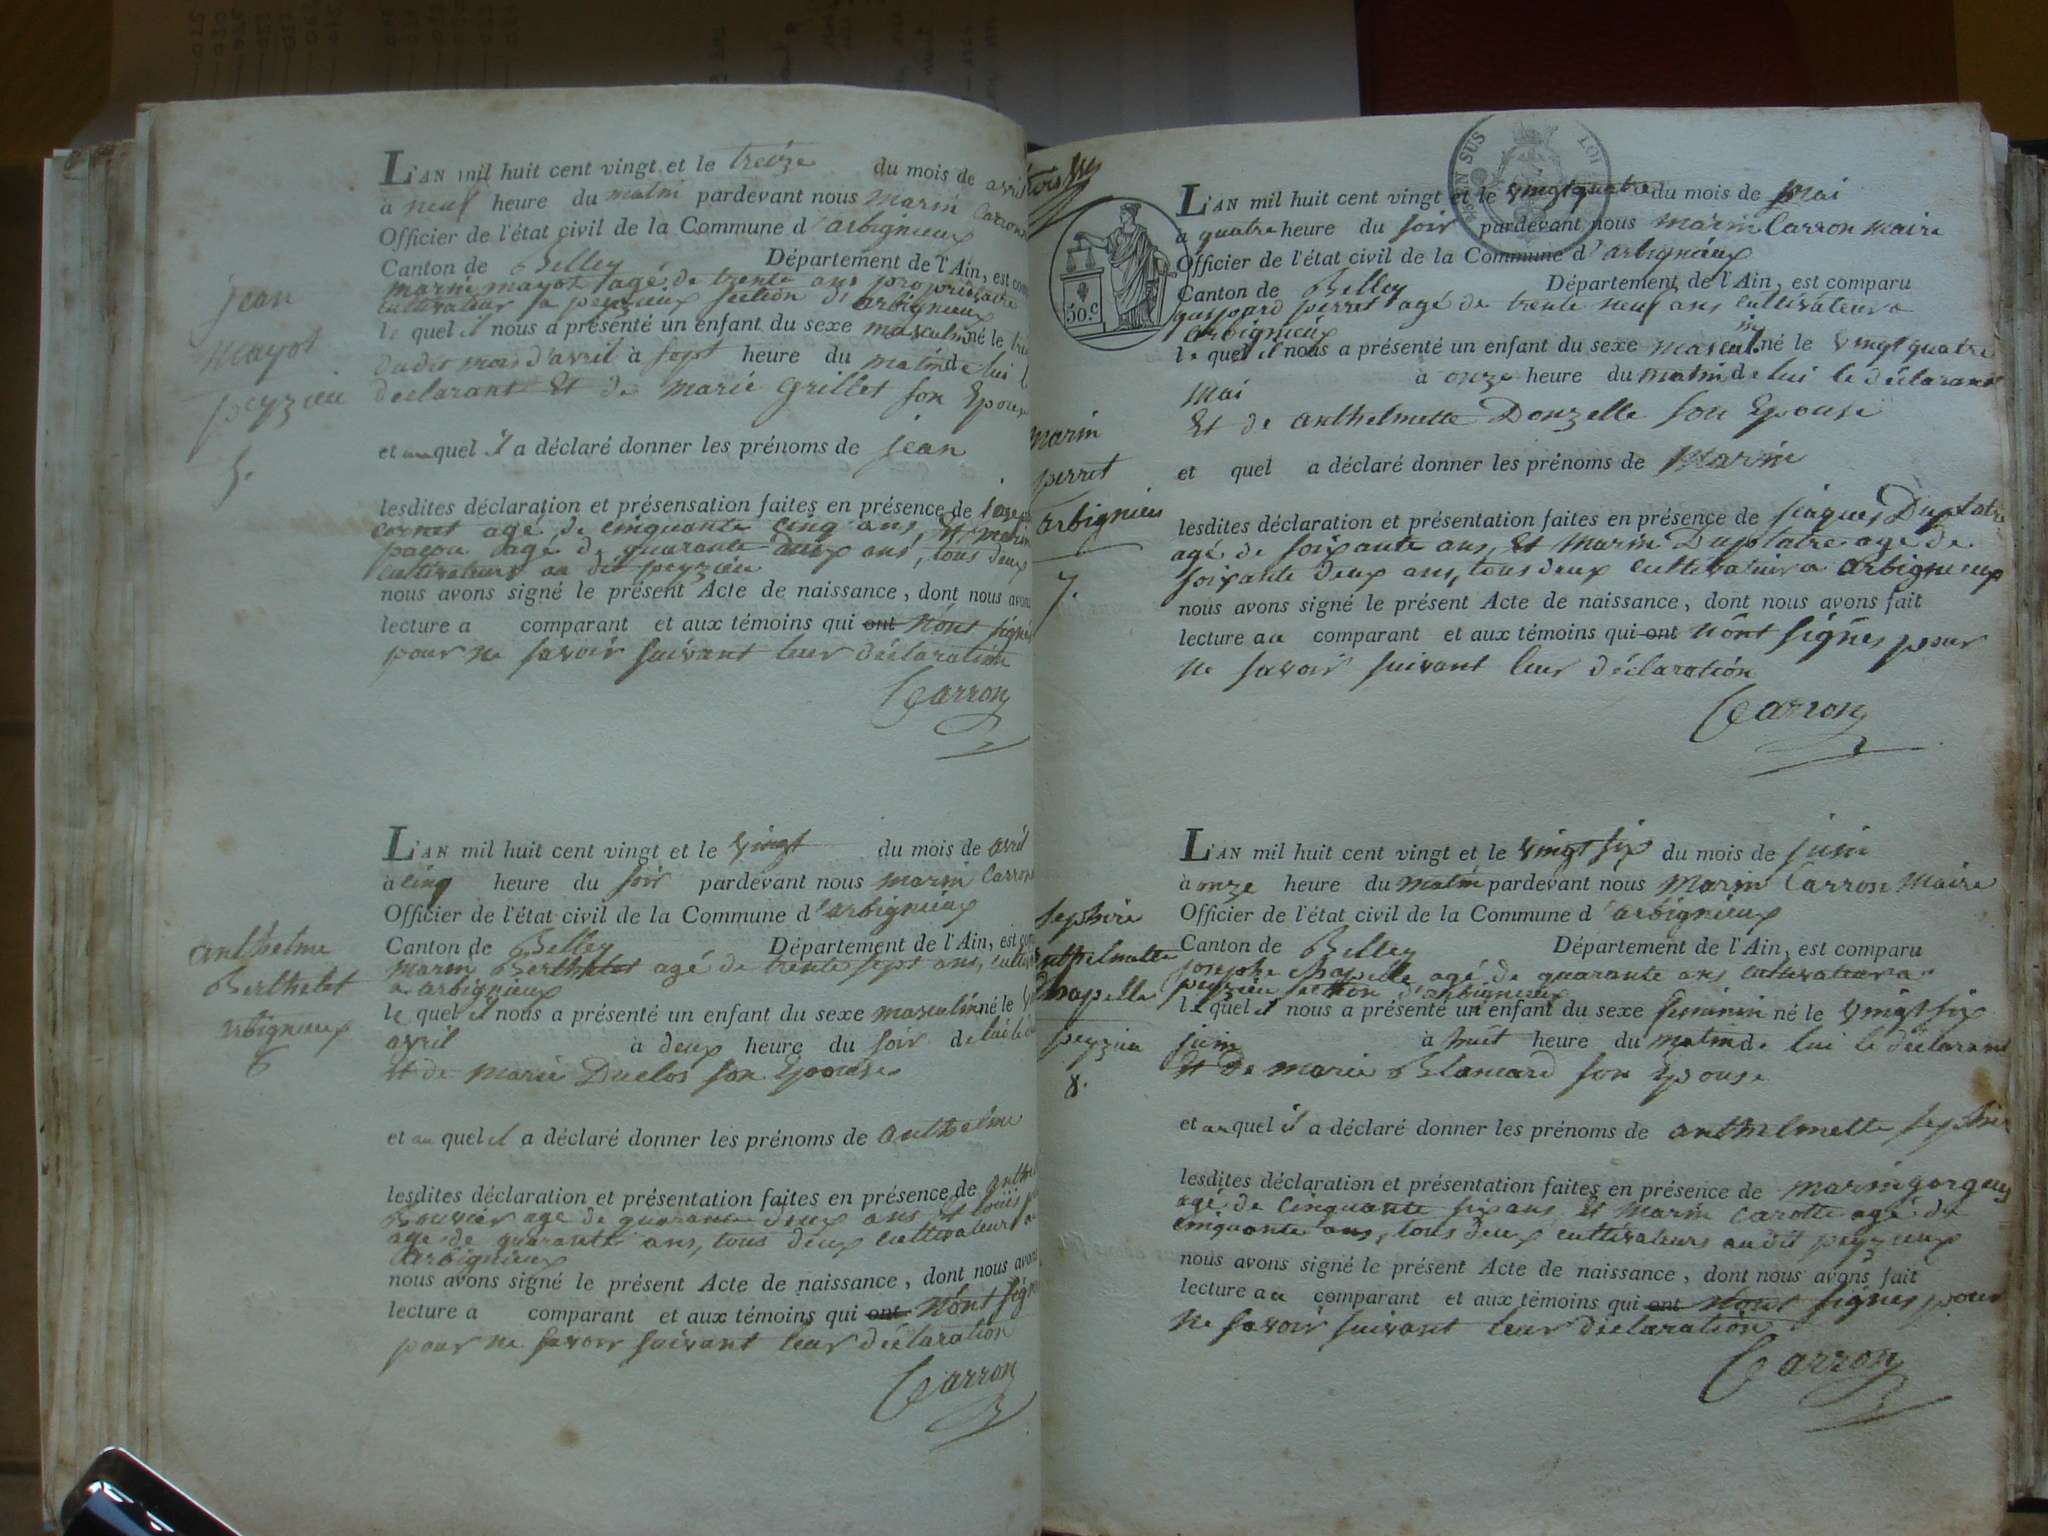 jean
mayot
peyzieu
5.
L'AN mil huit cent vingt et le treize du mois de avril
a neuf heure du matin pardevant nous marin Carron
Officier de l'état civil de la Commune d'arbignieux
Canton de Belley Département de l'Ain, est com
marin mayot agé de trente ans propriétaire
cultivateur a peyzieux section d'arbignieux
le quel il nous a présenté un enfant du sexe masculin né le
dudit mois d'avril à sept heure du matin de lui l
declarant Et de marie grillet son Epouse
et au quel il a déclaré donner les prénoms de jean
lesdites déclaration et présensation faites en présence de
cornet agé de cinquante cinq ans, Et
agé de quarante deux ans, tous deux
cultivateurs au dit peyzieu
nous avons signé le présent Acte de naissance, dont nous avons
lecture a comparant et aux témoins qui ont n'ont signés
pour ne savoir suivant leur déclaration
Carron
anthelme
Berthelet
arbignieux
6
L'AN mil huit cent vingt et le vingt du mois de avril
à cinq heure du soir pardevant nous marin Carron
Officier de l'état civil de la Commune d'arbignieux
Canton de Belley Département de l'Ain, est com
marin Berthelet agé de trente sept ans,
a arbignieux
le quel il nous a présenté un enfant du sexe masculin né le
avril à deux heure du soir de lui le
Et de marie Duclos son Epouse
et au quel il a déclaré donner les prénoms de anthelme
lesdites déclaration et présentation faites en présence de
Bouvier age de quarante deux ans Et louis
age de quarante ans, tous deux cultivateurs a
arbignieux
nous avons signé le présent Acte de naissance, dont nous avons
lecture a comparant et aux témoins qui ont n'ont signés
pour ne savoir suivant leur déclaration
Carron
SUS LOI
50.c
marin
perret
arbignieu
7.
L'AN mil huit cent vingt et le vingt quatre du mois de mai
a quatre heure du soir pardevant nous marin Carron maire
Officier de l'état civil de la Commune d'arbignieux
Canton de Belley Département de l'Ain, est comparu
gaspard perret agé de trente neuf ans cultivateur a
arbignieux
le quel il nous a présenté un enfant du sexe masculin né le vingt quatre
mai à onze heure du matin de lui le déclarant
Et de anthelmette Donzelle son Epouse
et quel a déclaré donner les prénoms de Marin
lesdites déclaration et présentation faites en présence de jaques Duplatre
agé de soixante ans, Et Marin Duplatre agé de
soixante deux ans, tous deux cultivateur a arbignieux
nous avons signé le présent Acte de naissance, dont nous avons fait
lecture au comparant et aux témoins qui ont n'ont signés pour
ne savoir suivant leur déclaration
Carron
sephire
anthelmette
Chapelle
peyzieu
8.
L'AN mil huit cent vingt et le vingt six du mois de juin
à onze heure du matin pardevant nous Marin Carron Maire
Officier de l'état civil de la Commune d'arbignieux
Canton de Belley Département de l'Ain, est comparu
josephe chapelle agé de quarante ans cultivateur a
peyzieu section d'arbignieux
le quel il nous a présenté un enfant du sexe feminin né le vingt six
juin à huit heure du matin de lui le déclarant
Et de marie Blancard son Epouse
et au quel il a déclaré donner les prénoms de anthelmette sephire
lesdites déclaration et présentation faites en présence de marin
agé de cinquante six ans Et Marin Carotte agé de
cinquante ans, tous deux cultivateurs audit peyzieux
nous avons signé le présent Acte de naissance, dont nous avons fait
lecture au comparant et aux témoins qui ont n'ont signés pour
ne savoir suivant leur déclaration
Carron